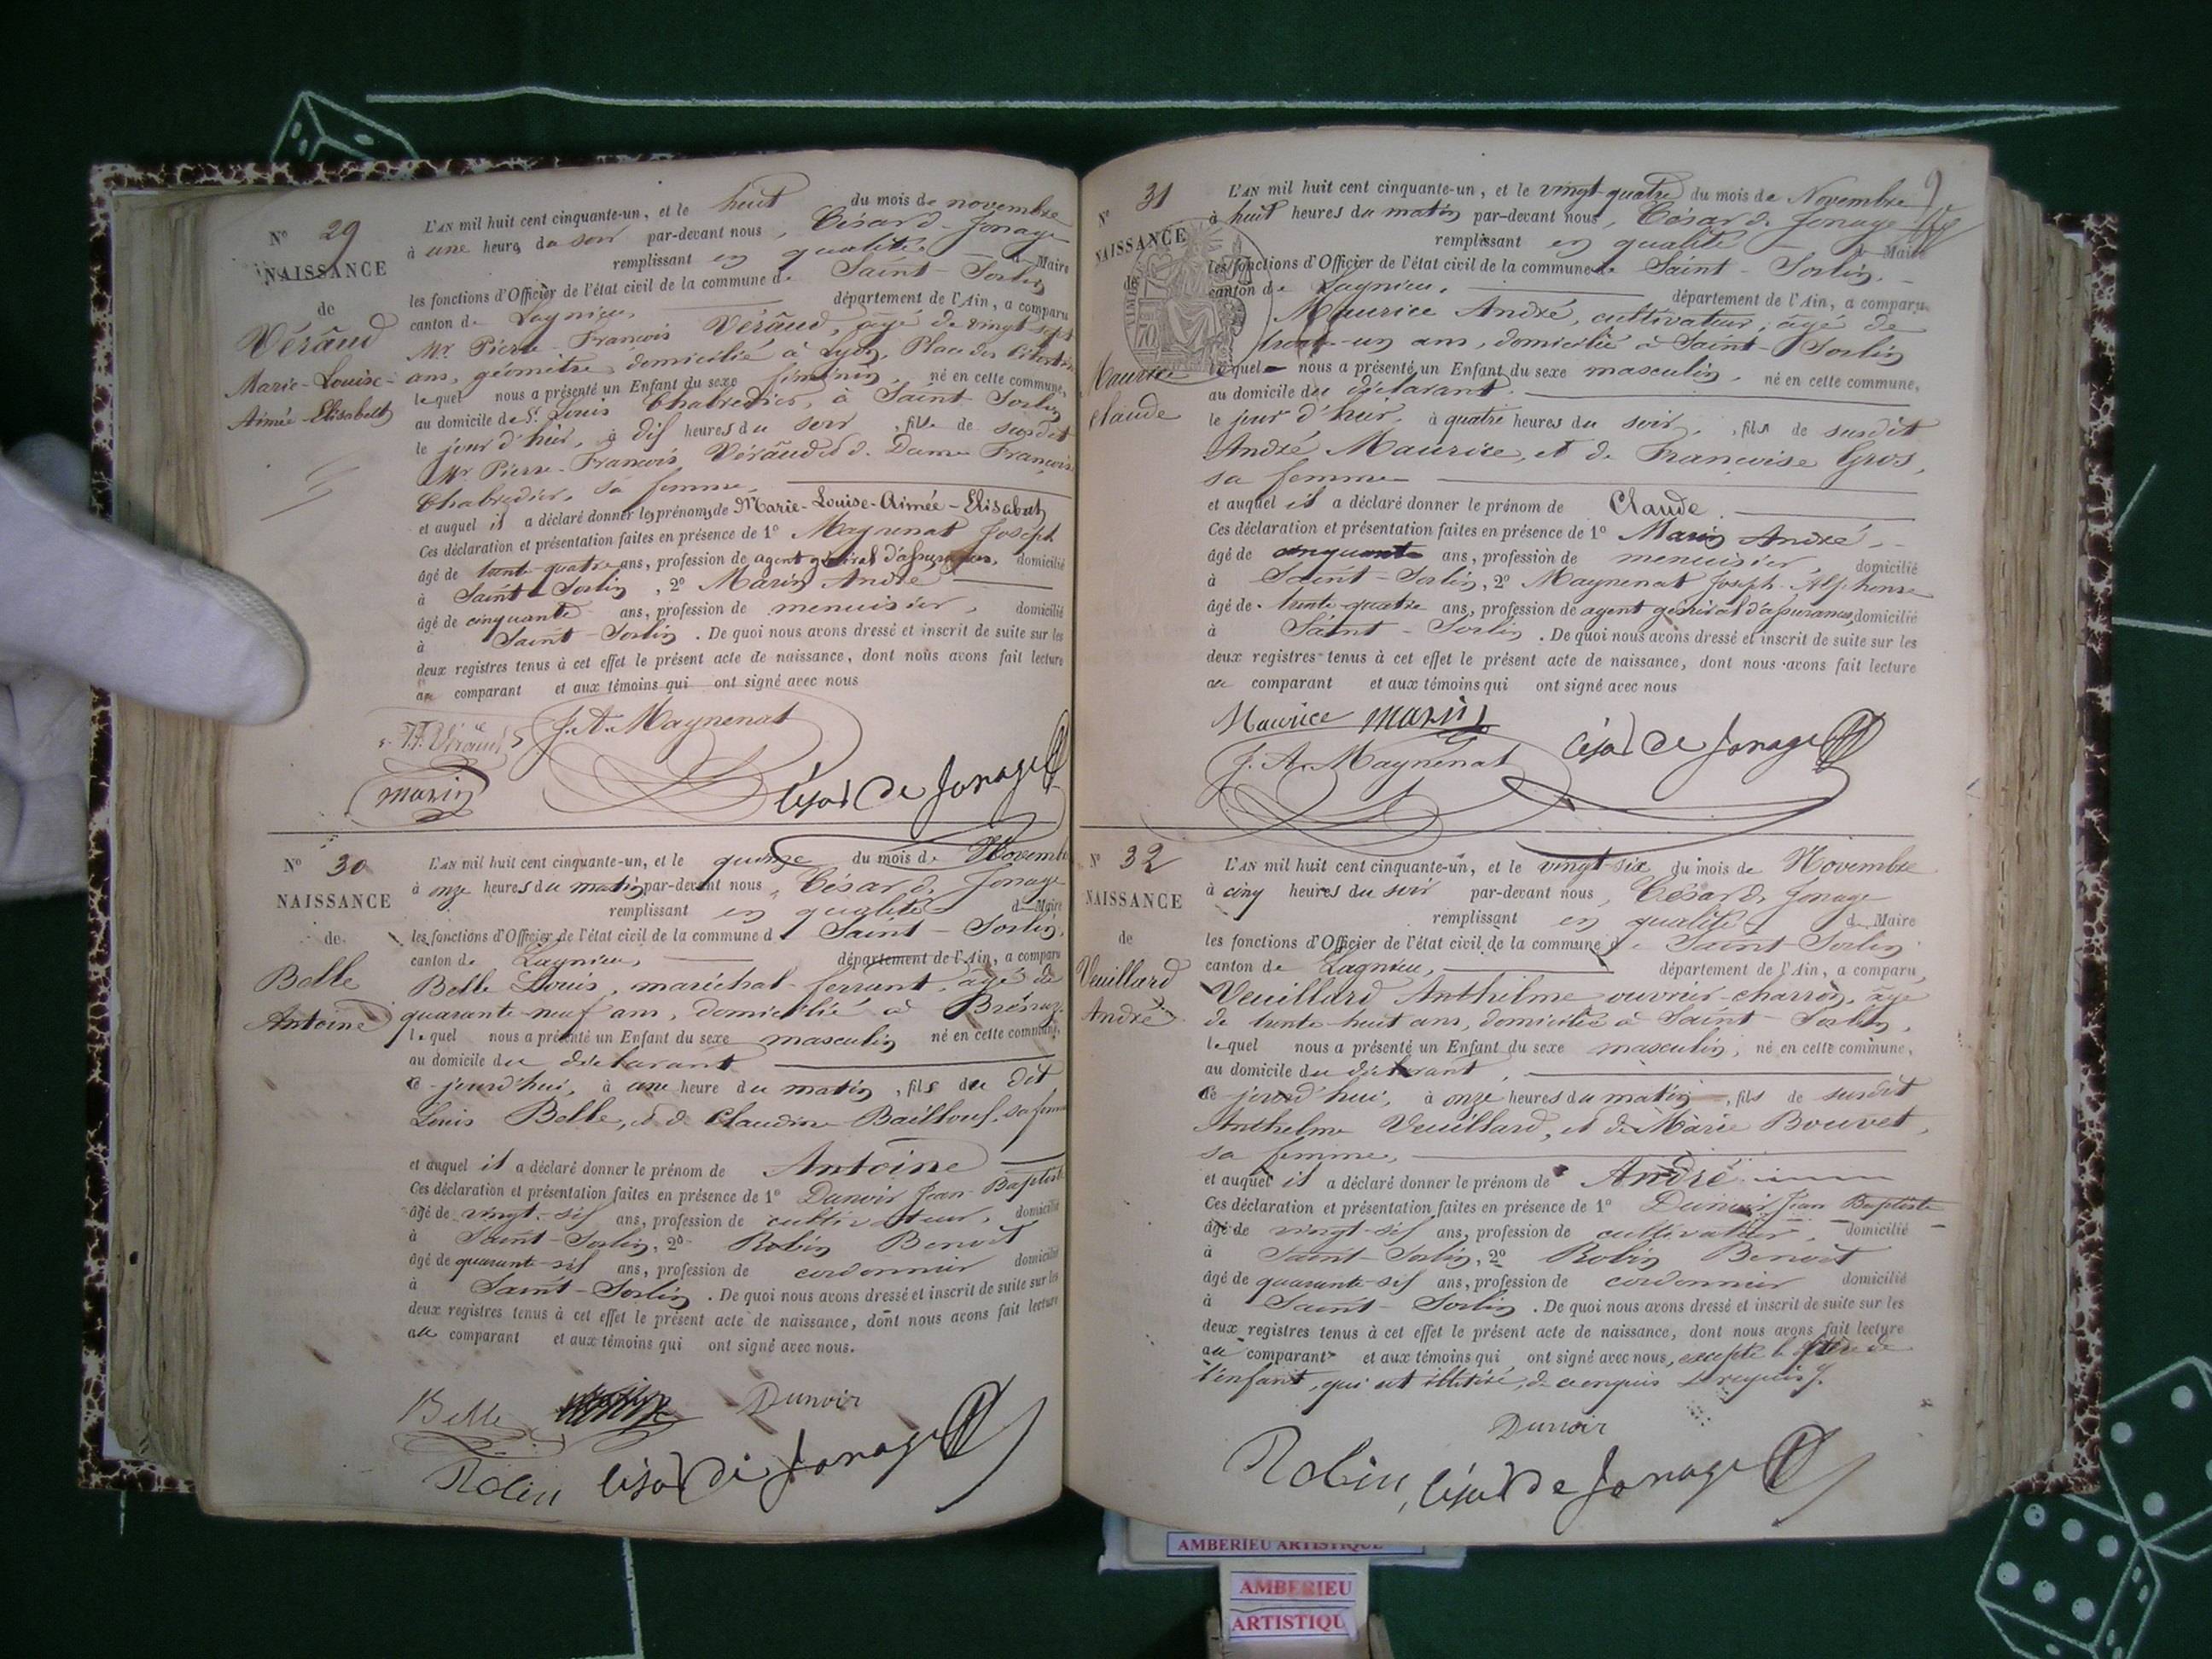 Nº 29
NAISSANCE
de
Vérâud
Marie-Louise-
Aimée-Elisabeth
L'AN mil huit cent cinquante-un, et le huit du mois de novembre
à une heure du soir par-devant nous, César de Jonage
remplissant en qualité de Maire
les fonctions d'Officier de l'état civil de la commune de Saint-Sorlin
canton de Lagnieu, département de l'Ain, a comparu
Mr. Pierre-François Vérâud, âgé de vingt sept
ans, géomètre, domicilié à Lyon, Place des
lequel nous a présenté un Enfant du sexe féminin, né en cette commune,
au domicile de Sr. Louis Chabredier, à Saint Sorlin
le jour d'hier, à dix heures du soir, fille de susdit
Mr. Pierre-François Vérâud et de Dame Françoise
Chabredier, sa femme,
et auquel il a déclaré donner les prénoms de Marie-Louise-Aimée-Elisabeth
Ces déclaration et présentation faites en présence de 1º Maynenat Joseph
âgé de trente-quatre ans, profession de agent général d'assurances, domicilié
à Saint-Sorlin, 2º Marin André
âgé de cinquante ans, profession de menuisier, domicilié
à Saint-Sorlin. De quoi nous avons dressé et inscrit de suite sur les
deux registres tenus à cet effet le présent acte de naissance, dont nous avons fait lecture
au comparant et aux témoins qui ont signé avec nous
Véraud J. A. Maynenat
marin César de Jonage
Nº 30
NAISSANCE
de
Belle
Antoine
L'AN mil huit cent cinquante-un, et le quinze du mois de Novembre
à onze heures du matin par-devant nous, César de Jonage
remplissant en qualité de Maire
les fonctions d'Officier de l'état civil de la commune de Saint-Sorlin,
canton de Lagnieu, département de l'Ain, a comparu
Belle Louis, maréchal-ferrant, âgé de
quarante-neuf ans, domicilié à
lequel nous a présenté un Enfant du sexe masculin né en cette commune,
au domicile du déclarant
ce jourd'hui, à une heure du matin, fils du dit
Louis Belle, et de Claudine sa femme
et auquel il a déclaré donner le prénom de Antoine
Ces déclaration et présentation faites en présence de 1º Dunoir Jean-Baptiste
âgé de vingt-six ans, profession de cultivateur, domicilié
à Saint-Sorlin, 2º Robin Benoit
âgé de quarante-six ans, profession de cordonnier domicilié
à Saint-Sorlin. De quoi nous avons dressé et inscrit de suite sur les
deux registres tenus à cet effet le présent acte de naissance, dont nous avons fait lecture
au comparant et aux témoins qui ont signé avec nous.
Belle Dunoir
Robin César de Jonage
9
Nº 31
NAISSANCE
de
Maurice
Claude
L'AN mil huit cent cinquante-un, et le vingt-quatre du mois de Novembre
à huit heures du matin par-devant nous, César de Jonage
remplissant en qualité de Maire
les fonctions d'Officier de l'état civil de la commune de Saint-Sorlin.
canton de Lagnieu. département de l'Ain, a comparu
Maurice André, cultivateur, âgé de
trente-un ans, domicilié à Saint-Sorlin
lequel nous a présenté un Enfant du sexe masculin, né en cette commune,
au domicile du déclarant.
le jour d'hier, à quatre heures du soir, fils de susdit
André Maurice, et de Françoise Gros,
sa femme
et auquel il a déclaré donner le prénom de Claude.
Ces déclaration et présentation faites en présence de 1º Marin André,
âgé de cinquante ans, profession de menuisier, domicilié
à Saint-Sorlin, 2º Maynenat Joseph Alphonse
âgé de trente-quatre ans, profession de agent général d'assurances, domicilié
à Saint-Sorlin. De quoi nous avons dressé et inscrit de suite sur les
deux registres tenus à cet effet le présent acte de naissance, dont nous avons fait lecture
au comparant et aux témoins qui ont signé avec nous
Maurice marin
J. A. Maynenat César de Jonage
Nº 32
NAISSANCE
de
Veuillard
André
L'AN mil huit cent cinquante-un, et le vingt-six du mois de Novembre
à cinq heures du soir par-devant nous, César de Jonage
remplissant en qualité de Maire
les fonctions d'Officier de l'état civil de la commune de Saint-Sorlin
canton de Lagnieu, département de l'Ain, a comparu,
Veuillard Anthelme ouvrier-charron, âgé
de trente-huit ans, domicilié à Saint-Sorlin,
lequel nous a présenté un Enfant du sexe masculin, né en cette commune,
au domicile du déclarant,
ce jourd'hui, à onze heures du matin, fils de susdit
Anthelme Veuillard, et de Marie Bouvet,
sa femme,
et auquel il a déclaré donner le prénom de André
Ces déclaration et présentation faites en présence de 1º Dunoir Jean Baptiste
âgé de vingt-six ans, profession de cultivateur, domicilié
à Saint-Sorlin, 2º Robin Benoit
âgé de quarante-six ans, profession de cordonnier domicilié
à Saint-Sorlin. De quoi nous avons dressé et inscrit de suite sur les
deux registres tenus à cet effet le présent acte de naissance, dont nous avons fait lecture
au comparant et aux témoins qui ont signé avec nous, excepté le père de
l'enfant, qui est illitéré, de ce enquis et requis.
Dunoir
Robin, César de Jonage
AMBERIEU ARTISTIQUE
AMBERIEU
ARTISTIQU